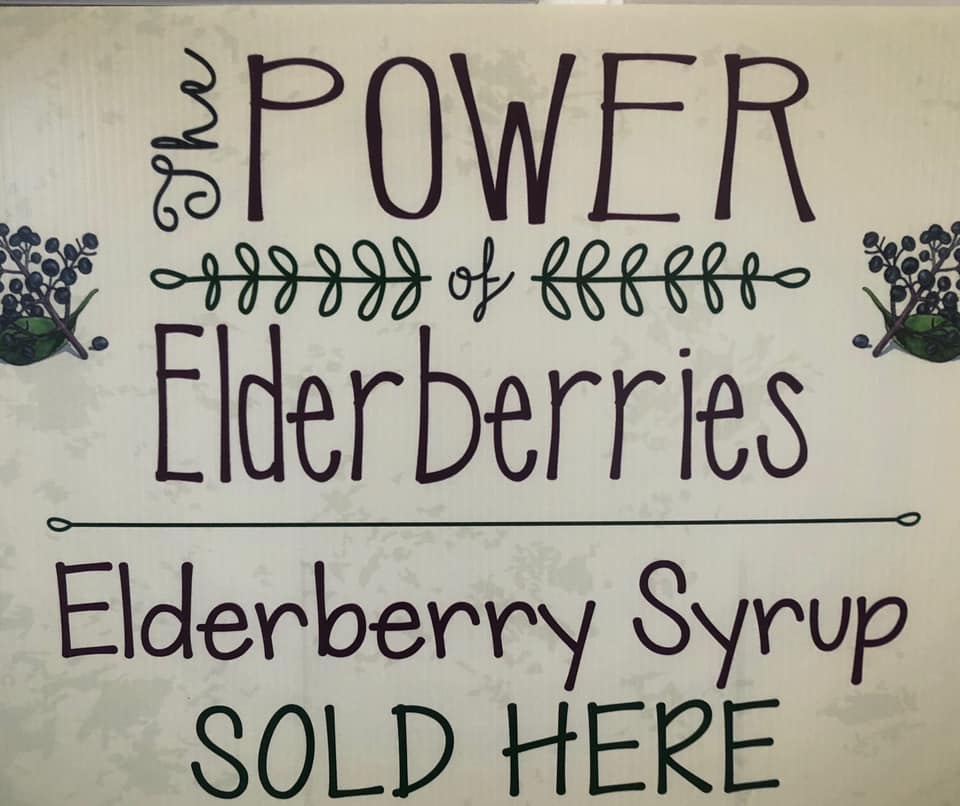 The POWER
of
Elderberries
Elderberry Syrup
SOLD HERE